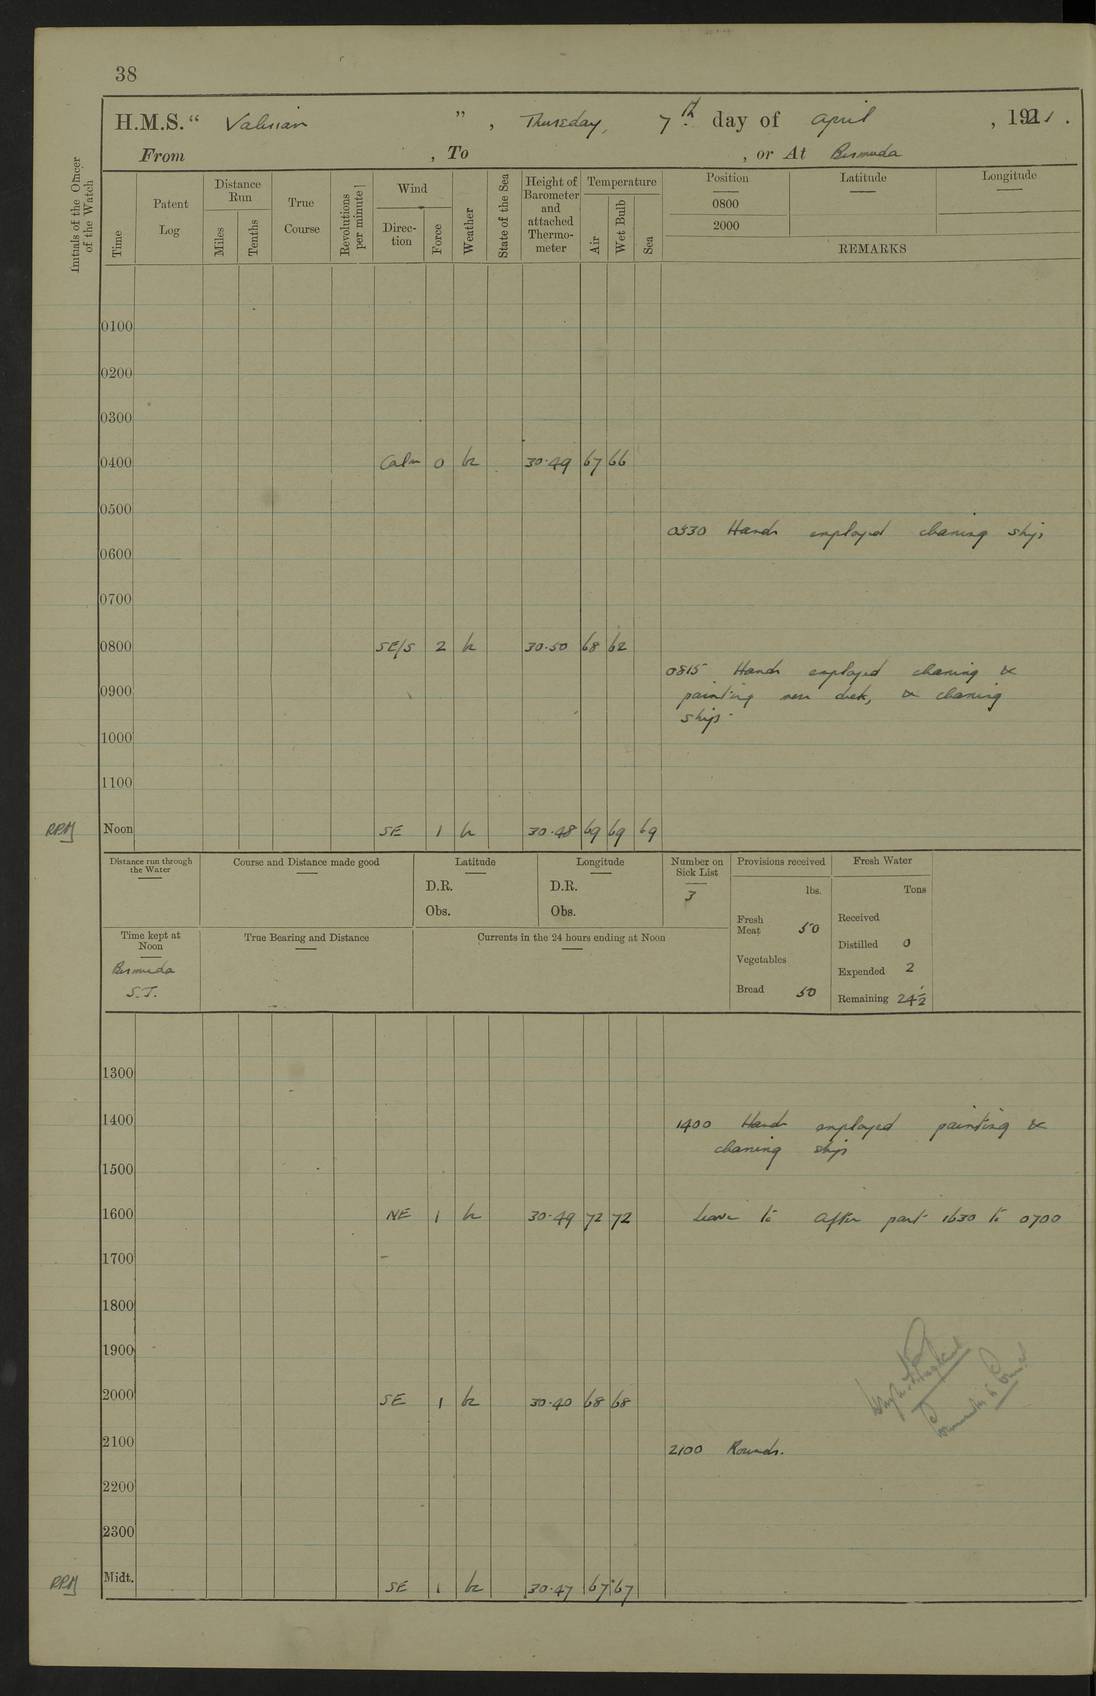 38
H.M.S. “ Valerian ” , Thursday, 7th day of April , 1921 .
From , To , or At Bermuda
Initials of the Officer of the Watch
Time
Patent Log
Distance Run
Miles
Tenths
True Course
Revolutions per minute
Wind
Direction
Force
Weather
State of the Sea
Height of Barometer and attached Thermometer
Temperature
Air
Wet Bulb
Sea
Position Latitude Longitude
0800
2000
REMARKS
0100
0200
0300
0400 Calm 0 bc 30·49 67 66
0500
0530 Hands employed cleaning ship
0600
0700
0800 SE/S 2 bc 30·50 68 62
0815 Hands employed cleaning &
0900 painting mess deck, & cleaning
ship.
1000
1100
RPM Noon SE 1 bc 30·48 69 69 69
Distance run through the Water
Course and Distance made good
Latitude
D.R.
Obs.
Longitude
D.R.
Obs.
Number on Sick List
3
Provisions received
lbs.
Fresh Meat 50
Vegetables
Bread 50
Fresh Water
Tons
Received
Distilled 0
Expended 2
Remaining 24½
Time kept at Noon
Bermuda
S.T.
True Bearing and Distance
Currents in the 24 hours ending at Noon
1300
1400 1400 Hands employed painting &
cleaning ship
1500
1600 NE 1 bc 30·49 72 72 Leave to after part 1630 to 0700
1700
1800
1900
2000 SE 1 bc 30·40 68 68
Commander in Command
2100 2100 Rounds.
2200
2300
RPM Midt. SE 1 bc 30·47 67 67